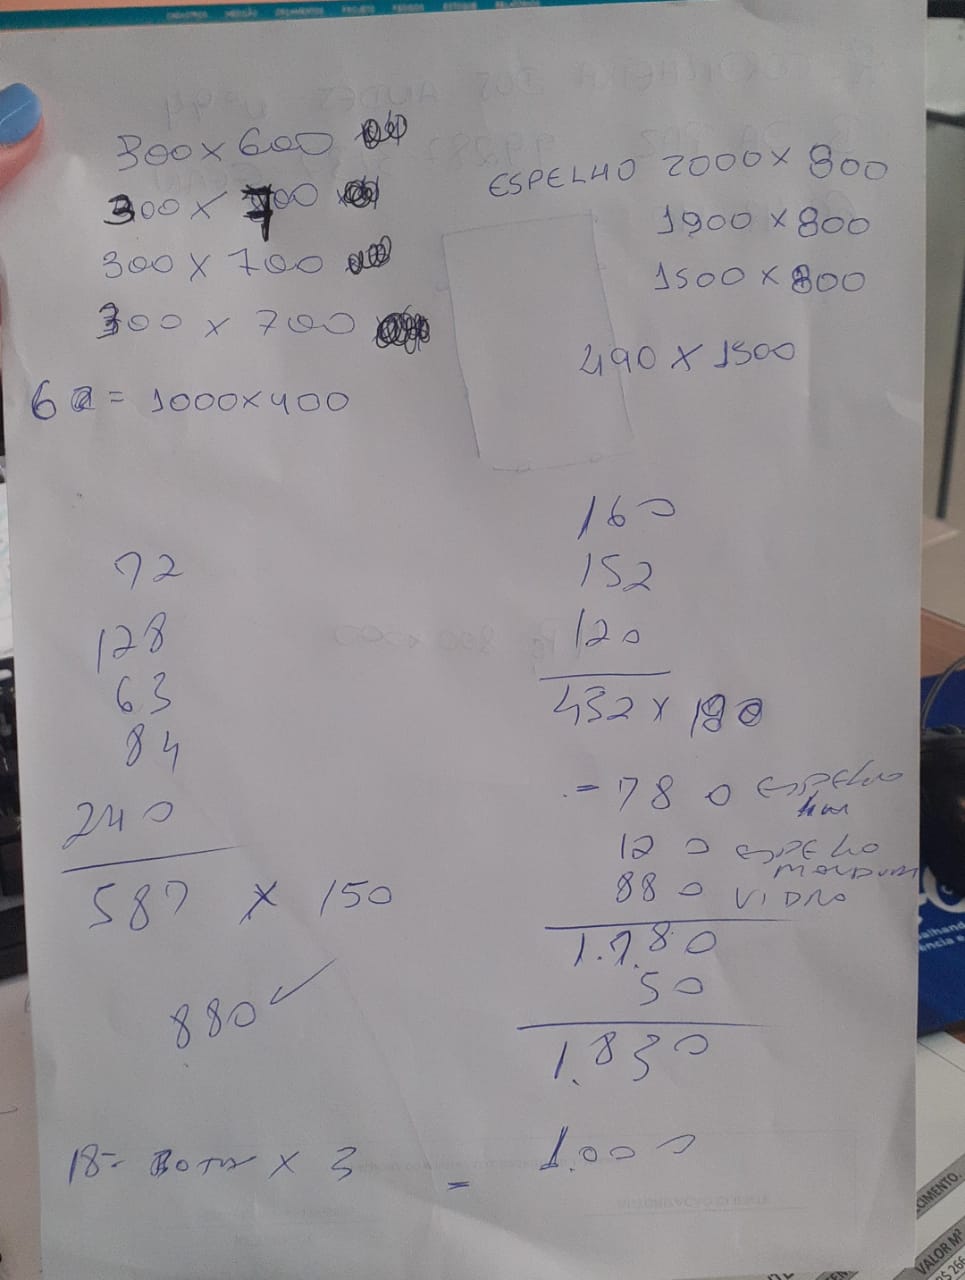 CADASTROS MEDIÇÃO ORÇAMENTOS PROJETO PEDIDOS ESTOQUE RELATÓRIOS
300 x 600
300 x 700
300 x 700
300 x 700
6 = 1000x400
ESPELHO 2000 x 800
1900 x 800
1500 x 800
490 x 1500
72
128
63
84
240
587 x 150
880
160
152
120
432 x 180
= 780 ESPELHO
120 ESPELHO
MOLDURA
880 VIDRO
1.780
50
1.830
18= x 3 = 1.000
CIMENTO.
VALOR M²